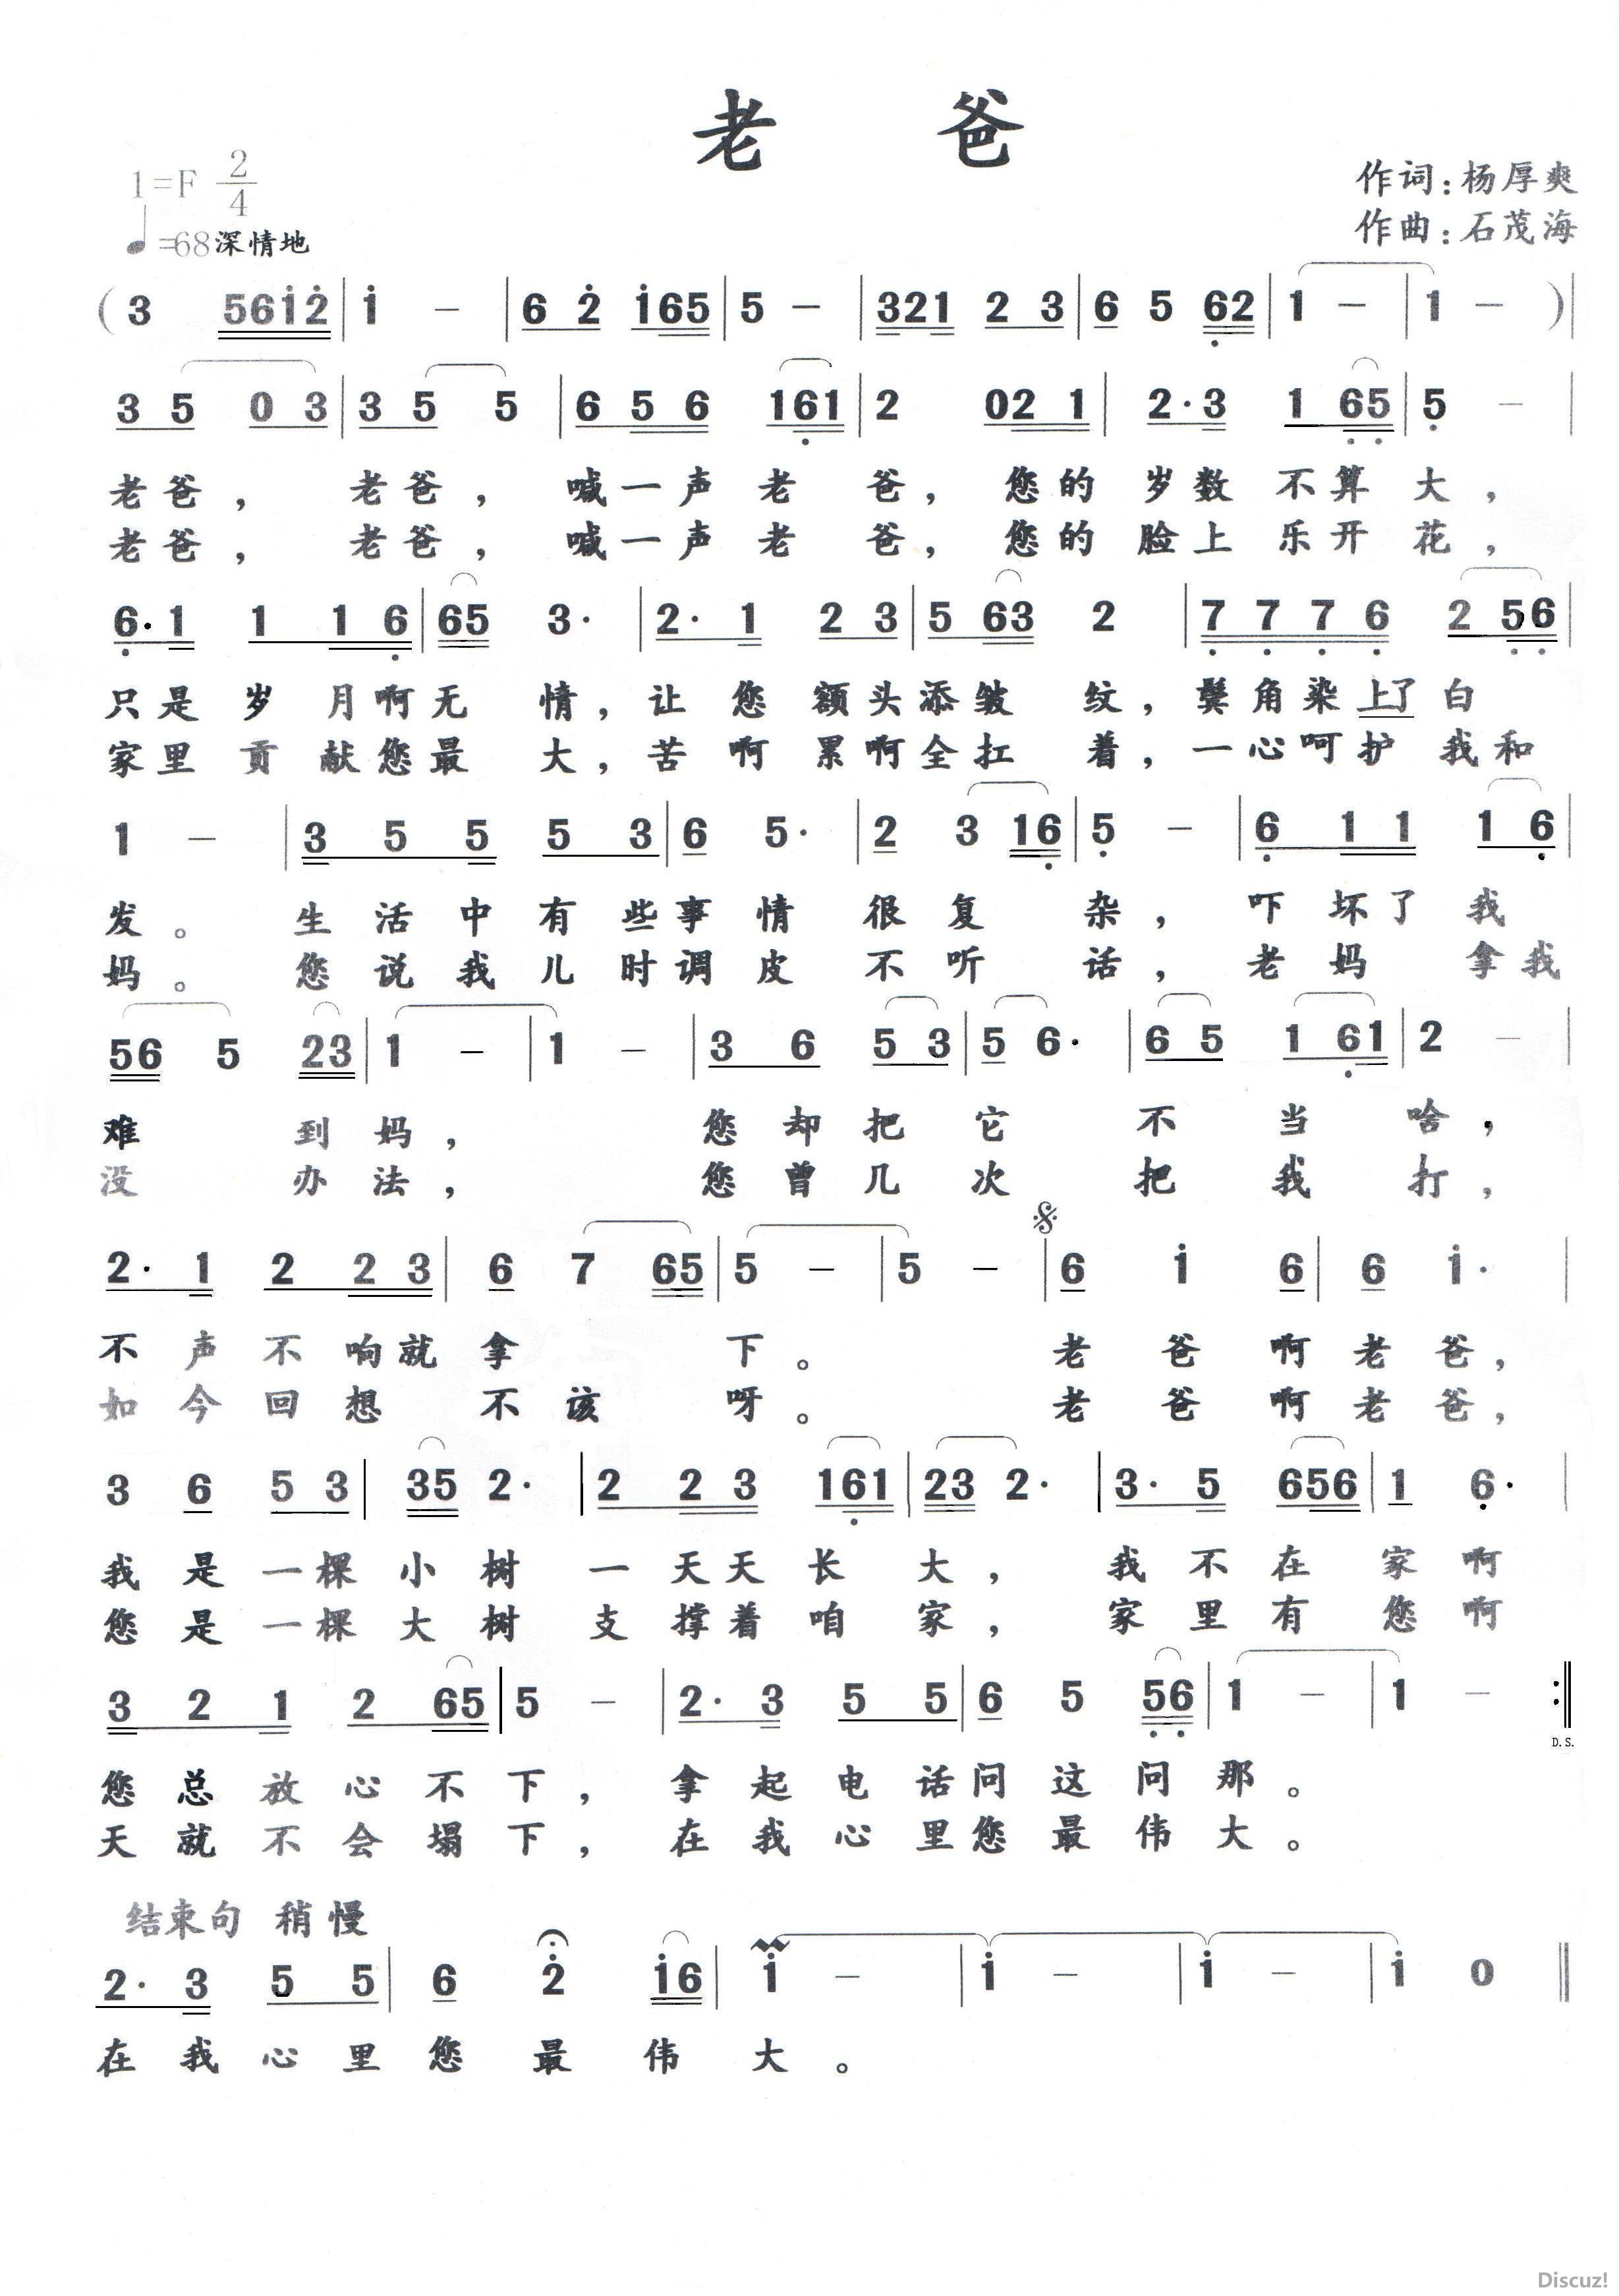 老 爸
1=F 2/4
♩=68深情地
作词:杨厚爽
作曲:石茂海
( 3 561̇2̇ | 1̇ — | 6 2̇ 1̇65 | 5 — | 321 2 3 | 6 5 6̣2 | 1 — | 1 — ) |
3 5 0 3 | 3 5 5 | 6 5 6 16̣1 | 2 02 1 | 2·3 1 6̣5̣ | 5̣ — |
老爸, 老爸, 喊一声老 爸, 您的 岁数 不算 大,
老爸, 老爸, 喊一声老 爸, 您的 脸上 乐开 花,
6̣·1 1 1 6̣ | 65 3· | 2· 1 2 3 | 5 63 2 | 7̣ 7̣ 7̣ 6̣ 2 5̣6̣ |
只是 岁 月啊无 情, 让 您 额头添皱 纹, 鬓角染上了白
家里 贡 献您最 大, 苦 啊 累啊全扛 着, 一心呵护 我和
1 — | 3 5 5 5 3 | 6 5· | 2 3 16̣ | 5̣ — | 6̣ 1 1 1 6̣ |
发。 生 活 中 有 些事 情 很 复 杂, 吓 坏了 我
妈。 您 说 我 儿 时调 皮 不 听 话, 老 妈 拿我
56 5 23 | 1 — | 1 — | 3 6 5 3 | 5 6· | 6 5 1 6̣1 | 2 — |
难 到 妈, 您 却 把 它 不 当 啥,
没 办 法, 您 曾 几 次 把 我 打,
2· 1 2 2 3 | 6 7 65 | 5 — | 5 — | 𝄋 6 1̇ 6 | 6 1̇· |
不 声 不 响就 拿 下。 老 爸 啊 老 爸,
如 今 回 想 不 该 呀。 老 爸 啊 老 爸,
3 6 5 3 | 35 2· | 2 2 3 16̣1 | 23 2· | 3· 5 656 | 1 6̣· |
我 是 一棵 小 树 一 天天 长 大, 我 不 在 家 啊
您 是 一棵 大 树 支 撑着 咱 家, 家 里 有 您 啊
3 2 1 2 65 | 5 — | 2· 3 5 5 | 6 5 5̣6̣ | 1 — | 1 — :‖
D.S.
您 总 放 心 不 下, 拿 起 电 话问 这 问 那。
天 就 不 会 塌 下, 在 我 心 里您 最 伟 大。
结束句 稍慢
2· 3 5 5 | 6 2̇ 1̇6 | 1̇ — | 1̇ — | 1̇ — | 1̇ 0 ‖
在 我 心 里 您 最 伟 大。
Discuz!